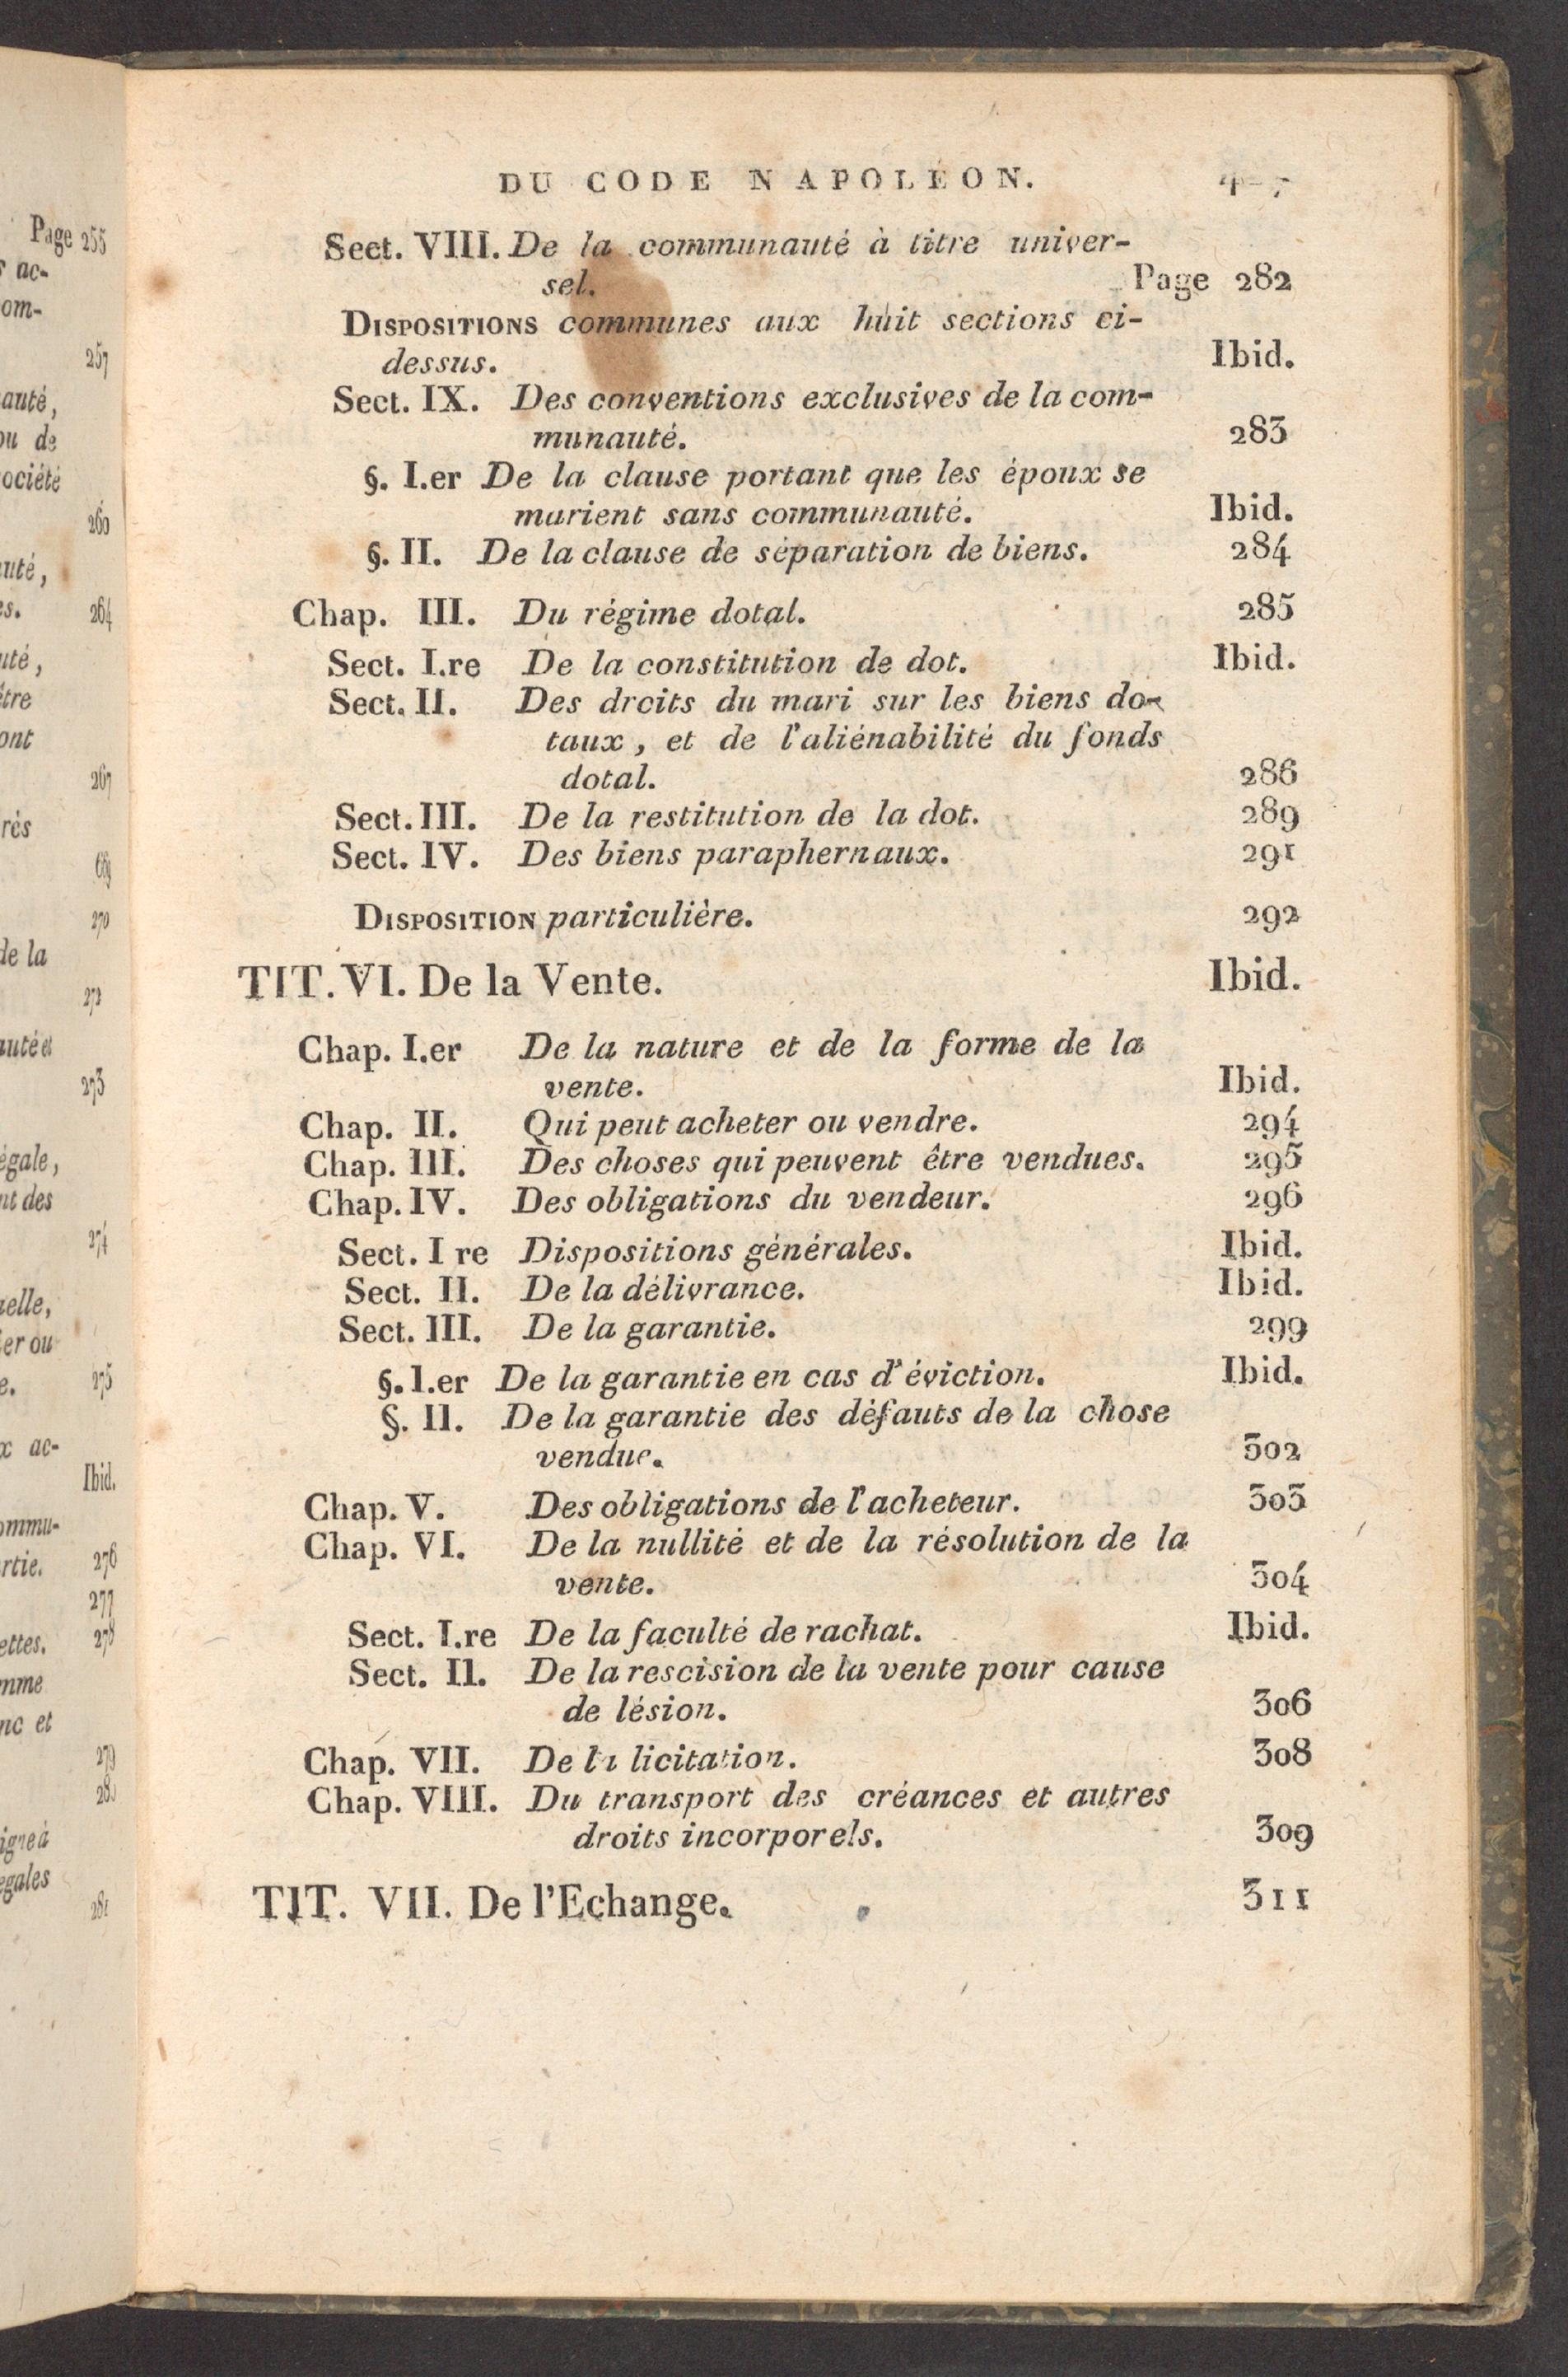 Page 255
ac-
om-
257
auté,
ou de
ociété
260
uté,
es.
264
uté,
être
ont
267
rés
270
de la
272
auté et
273
égale,
nt des
274
elle,
er ou
e.
275
x ac-
Ibid.
ommu-
rtie.
276
277
ettes.
278
mme
nc et
279
igne à
égales
281
DU CODE NAPOLÉON.
Sect. VIII. De la communauté à titre univer-
sel. Page 282
DISPOSITIONS communes aux huit sections ci-
dessus. Ibid.
Sect. IX. Des conventions exclusives de la com-
munauté. 283
§. I.er De la clause portant que les époux se
marient sans communauté. Ibid.
§. II. De la clause de séparation de biens. 284
Chap. III. Du régime dotal. 285
Sect. I.re De la constitution de dot. Ibid.
Sect. II. Des droits du mari sur les biens do-
taux, et de l'aliénabilité du fonds
dotal. 286
Sect. III. De la restitution de la dot. 289
Sect. IV. Des biens paraphernaux. 291
DISPOSITION particulière. 292
TIT. VI. De la Vente. Ibid.
Chap. I.er De la nature et de la forme de la
vente. Ibid.
Chap. II. Qui peut acheter ou vendre. 294
Chap. III. Des choses qui peuvent être vendues. 295
Chap. IV. Des obligations du vendeur. 296
Sect. I re Dispositions générales. Ibid.
Sect. II. De la délivrance. Ibid.
Sect. III. De la garantie. 299
§. I.er De la garantie en cas d'éviction. Ibid.
§. II. De la garantie des défauts de la chose
vendue. 302
Chap. V. Des obligations de l'acheteur. 303
Chap. VI. De la nullité et de la résolution de la
vente. 304
Sect. I.re De la faculté de rachat. Ibid.
Sect. II. De la rescision de la vente pour cause
de lésion. 306
Chap. VII. De la licitation. 308
Chap. VIII. Du transport des créances et autres
droits incorporels. 309
TIT. VII. De l'Echange. 311